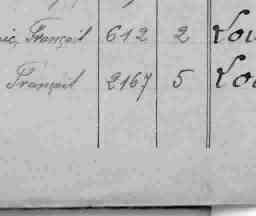 Français 612 2 Lou
Français 2167 5 Lou